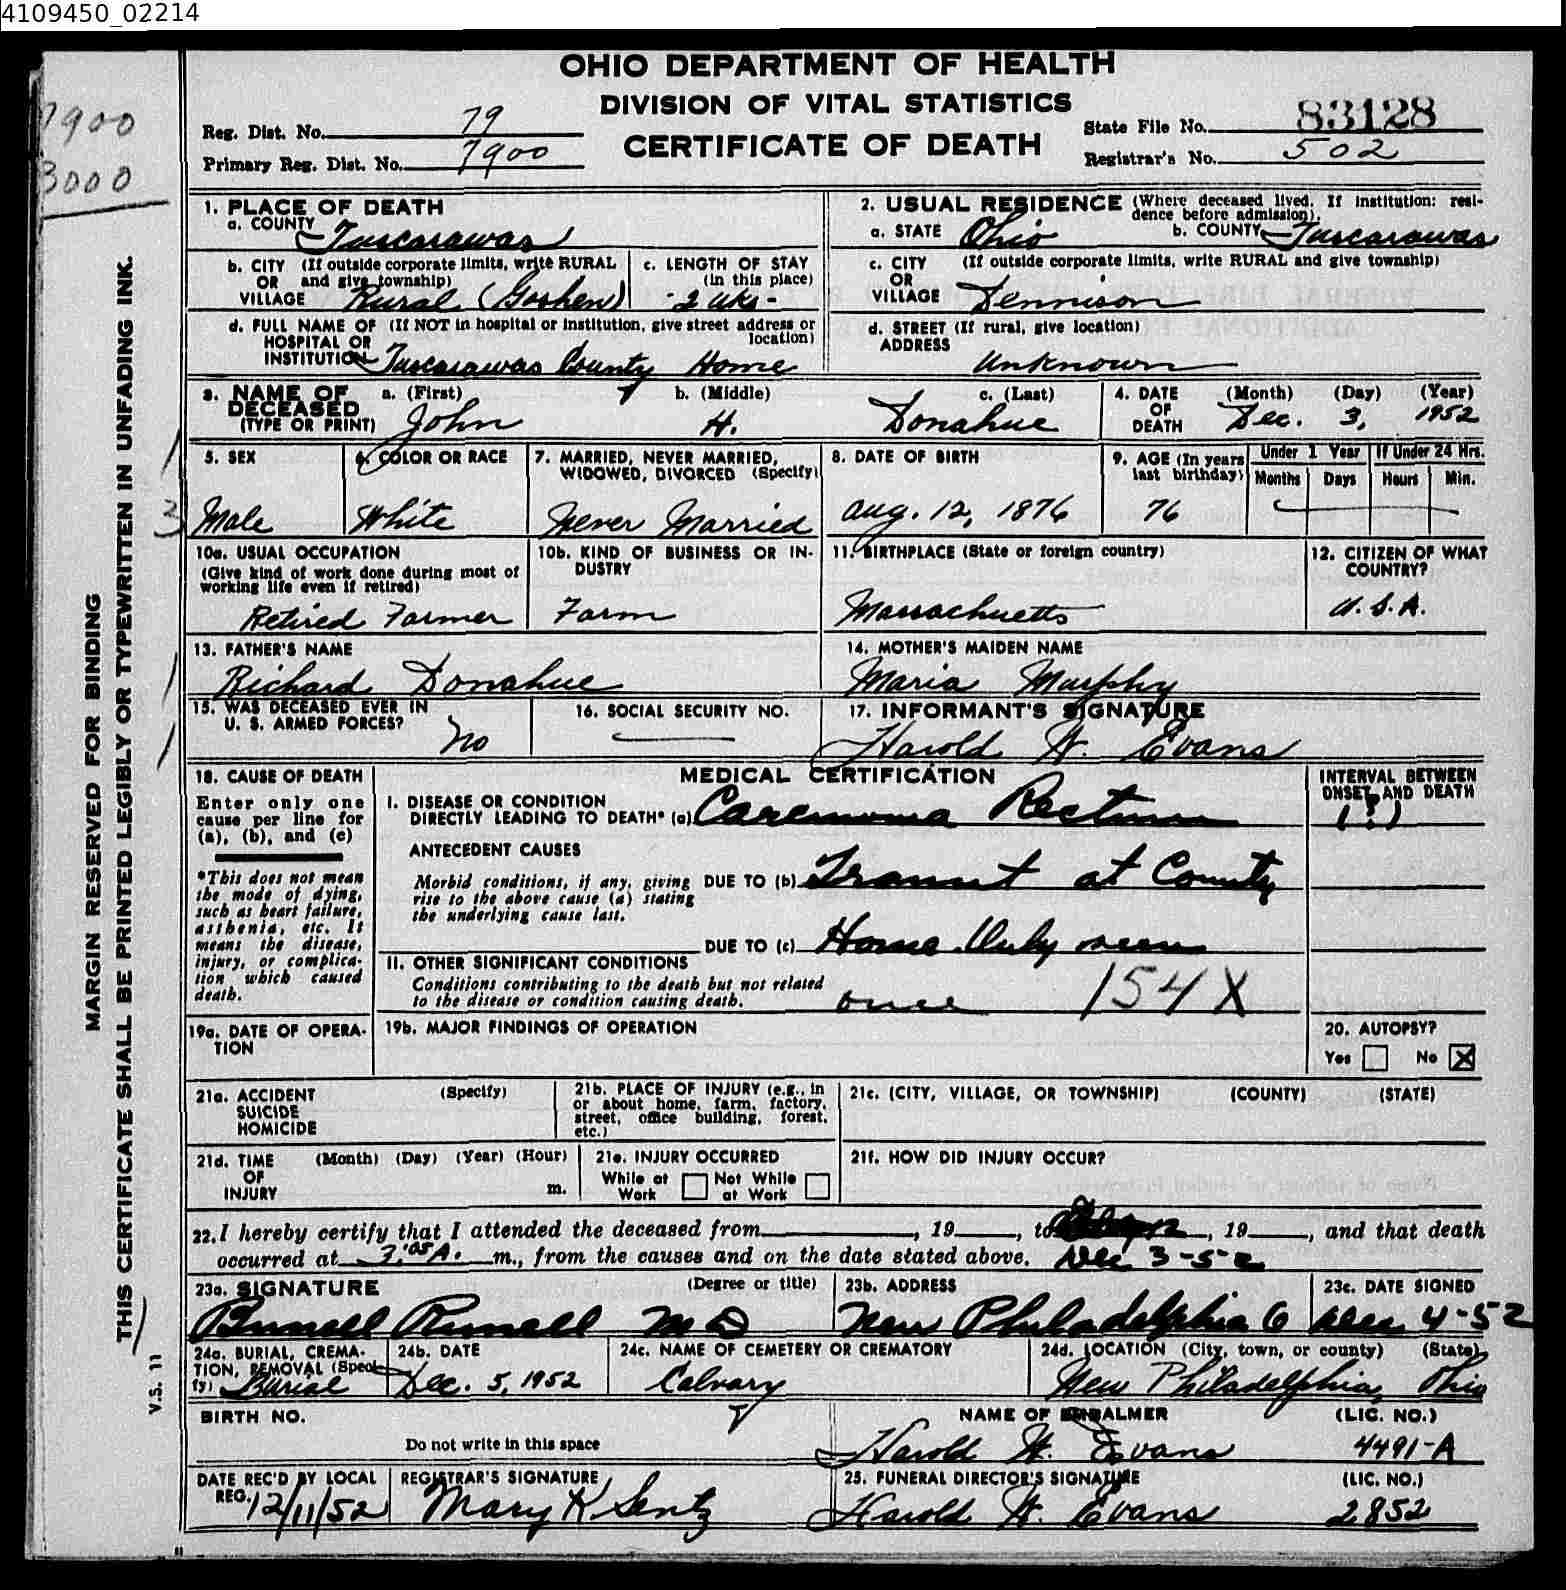 4109450_02214
OHIO DEPARTMENT OF HEALTH
DIVISION OF VITAL STATISTICS
CERTIFICATE OF DEATH
7900
3000
Reg. Dist. No. 79
Primary Reg. Dist. No. 7900
State File No. 83128
Registrar's No. 502
MARGIN RESERVED FOR BINDING
THIS CERTIFICATE SHALL BE PRINTED LEGIBLY OR TYPEWRITTEN IN UNFADING INK.
V.S. 11
1. PLACE OF DEATH
a. COUNTY Tuscarawas
2. USUAL RESIDENCE (Where deceased lived. If institution: resi-
dence before admission).
a. STATE Ohio b. COUNTY Tuscarawas
b. CITY (If outside corporate limits, write RURAL
OR and give township)
VILLAGE Rural (Goshen)
c. LENGTH OF STAY
(in this place)
-2 wks-
c. CITY (If outside corporate limits, write RURAL and give township)
OR
VILLAGE Dennison
d. FULL NAME OF (If NOT in hospital or institution, give street address or
HOSPITAL OR location)
INSTITUTION Tuscarawas County Home
d. STREET (If rural, give location)
ADDRESS
Unknown
3. NAME OF a. (First) b. (Middle) c. (Last)
DECEASED
(TYPE OR PRINT) John H. Donahue
4. DATE (Month) (Day) (Year)
OF
DEATH Dec. 3, 1952
5. SEX
Male
6. COLOR OR RACE
White
7. MARRIED, NEVER MARRIED,
WIDOWED, DIVORCED (Specify)
Never Married
8. DATE OF BIRTH
Aug. 12, 1876
9. AGE (In years
last birthday)
76
Under 1 Year
Months Days
If Under 24 Hrs.
Hours Min.
3
10a. USUAL OCCUPATION
(Give kind of work done during most of
working life even if retired)
Retired Farmer
10b. KIND OF BUSINESS OR IN-
DUSTRY
Farm
11. BIRTHPLACE (State or foreign country)
Massachuetts
12. CITIZEN OF WHAT
COUNTRY?
U.S.A.
13. FATHER'S NAME
Richard Donahue
14. MOTHER'S MAIDEN NAME
Maria Murphy
15. WAS DECEASED EVER IN
U. S. ARMED FORCES?
No
16. SOCIAL SECURITY NO.
17. INFORMANT'S SIGNATURE
Harold W. Evans
18. CAUSE OF DEATH
Enter only one
cause per line for
(a), (b), and (c)
*This does not mean
the mode of dying,
such as heart failure,
asthenia, etc. It
means the disease,
injury, or complica-
tion which caused
death.
MEDICAL CERTIFICATION
I. DISEASE OR CONDITION
DIRECTLY LEADING TO DEATH* (a) Carcinoma Rectum
INTERVAL BETWEEN
ONSET AND DEATH
(?)
ANTECEDENT CAUSES
Morbid conditions, if any, giving
rise to the above cause (a) stating
the underlying cause last.
DUE TO (b) at County
DUE TO (c) Home. Only seen
II. OTHER SIGNIFICANT CONDITIONS
Conditions contributing to the death but not related
to the disease or condition causing death.
once 154X
19a. DATE OF OPERA-
TION
19b. MAJOR FINDINGS OF OPERATION
20. AUTOPSY?
Yes No X
21a. ACCIDENT (Specify)
SUICIDE
HOMICIDE
21b. PLACE OF INJURY (e.g., in
or about home, farm, factory,
street, office building, forest,
etc.)
21c. (CITY, VILLAGE, OR TOWNSHIP) (COUNTY) (STATE)
21d. TIME (Month) (Day) (Year) (Hour)
OF
INJURY m.
21e. INJURY OCCURRED
While at Work Not While at Work
21f. HOW DID INJURY OCCUR?
22. I hereby certify that I attended the deceased from , 19 , to , 19 , and that death
occurred at 3:05 A. m., from the causes and on the date stated above. Dec 3-52
23a. SIGNATURE (Degree or title)
Russell MD
23b. ADDRESS
New Philadelphia O
23c. DATE SIGNED
Dec. 4-52
24a. BURIAL, CREMA-
TION, REMOVAL (Speci-
fy) Burial
24b. DATE
Dec. 5, 1952
24c. NAME OF CEMETERY OR CREMATORY
Calvary
24d. LOCATION (City, town, or county) (State)
New Philadelphia, Ohio
BIRTH NO.
Do not write in this space
NAME OF EMBALMER (LIC. NO.)
Harold W. Evans 4491-A
DATE REC'D BY LOCAL
REG. 12/11/52
REGISTRAR'S SIGNATURE
Mary K Sentz
25. FUNERAL DIRECTOR'S SIGNATURE (LIC. NO.)
Harold W. Evans 2852